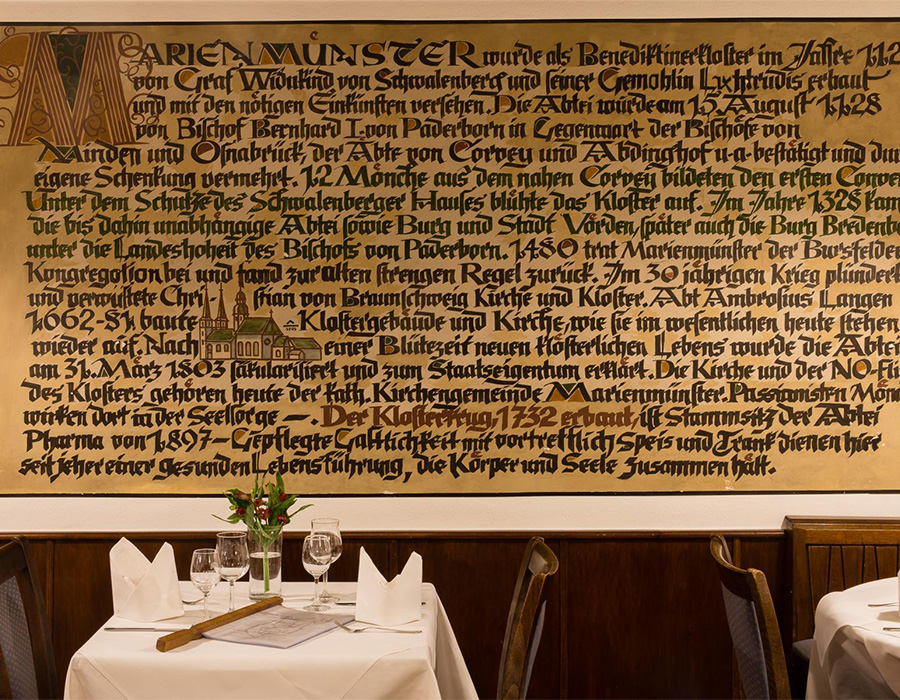 MARIENMÜNSTER wurde als Benediktinerkloster im Jahre 112
von Graf Widukind von Schwalenberg und seiner Gemahlin Luxhtrudis erbaut
und mit den nötigen Einkünften versehen. Die Abtei wurde am 15. August 1128
von Bischof Bernhard I. von Paderborn in Gegenwart der Bischöfe von
Minden und Osnabrück, der Äbte von Corvey und Abdinghof u.a. bestätigt und dur
eigene Schenkung vermehrt. 12 Mönche aus dem nahen Corvey bildeten den ersten Conven
Unter dem Schutze des Schwalenberger Hauses blühte das Kloster auf. Im Jahre 1328 kam
die bis dahin unabhängige Abtei sowie Burg und Stadt Vörden, später auch die Burg Bredenb
unter die Landeshoheit des Bischofs von Paderborn. 1480 trat Marienmünster der Bursfelder
Kongregation bei und fand zur alten strengen Regel zurück. Im 30 jährigen Krieg plündert
und verwüstete Christian von Braunschweig Kirche und Kloster. Abt Ambrosius Langen
1662-81 baute Klostergebäude und Kirche, wie sie im wesentlichen heute stehen
wieder auf. Nach einer Blütezeit neuen klösterlichen Lebens wurde die Abtei
am 31. März 1803 säkularisiert und zum Staatseigentum erklärt. Die Kirche und der NO-Flü
des Klosters gehören heute der kath. Kirchengemeinde Marienmünster. Passionisten Mön
wirken dort in der Seelsorge —. Der Klosterkrug, 1732 erbaut, ist Stammsitz der Abtei
Pharma von 1897 – Gepflegte Gastlichkeit mit vortrefflich Speis und Trank dienen hier
seit jeher einer gesunden Lebensführung, die Körper und Seele zusammen hält.